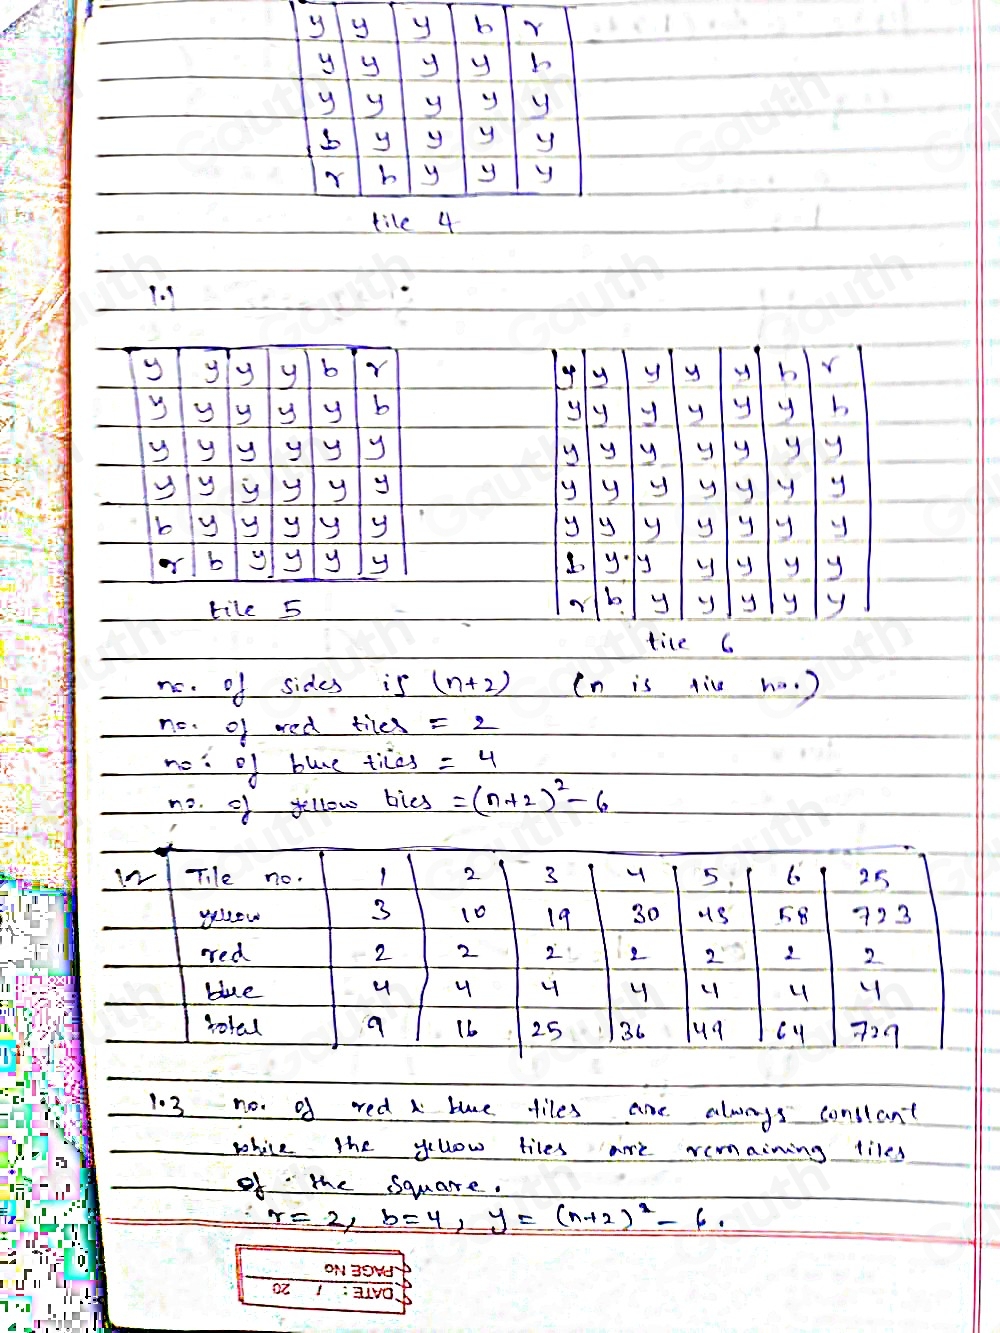 y y y b r
y y y y b
y y y y y
b y y y y
r b y y y
tile 4
1.1
y y y y b r
y y y y y b
y y y y y y
y y y y y y
b y y y y y
r b y y y y
tile 5
y y y y y b r
y y y y y y b
y y y y y y y
y y y y y y y
y y y y y y y
b y y y y y y
r b y y y y y
tile 6
no. of sides is (n+2) (n is tile no.)
no. of red tiles = 2
no. of blue tiles = 4
no. of yellow tiles = (n+2)² - 6
1.2 Tile no. 1 2 3 4 5 6 25
yellow 3 10 19 30 43 58 723
red 2 2 2 2 2 2 2
blue 4 4 4 4 4 4 4
total 9 16 25 36 49 64 729
1.3 no. of red & blue tiles are always constant
while the yellow tiles are remaining tiles
of the square.
r = 2, b = 4, y = (n+2)² - 6.
PAGE No
DATE: / 20
Gauth